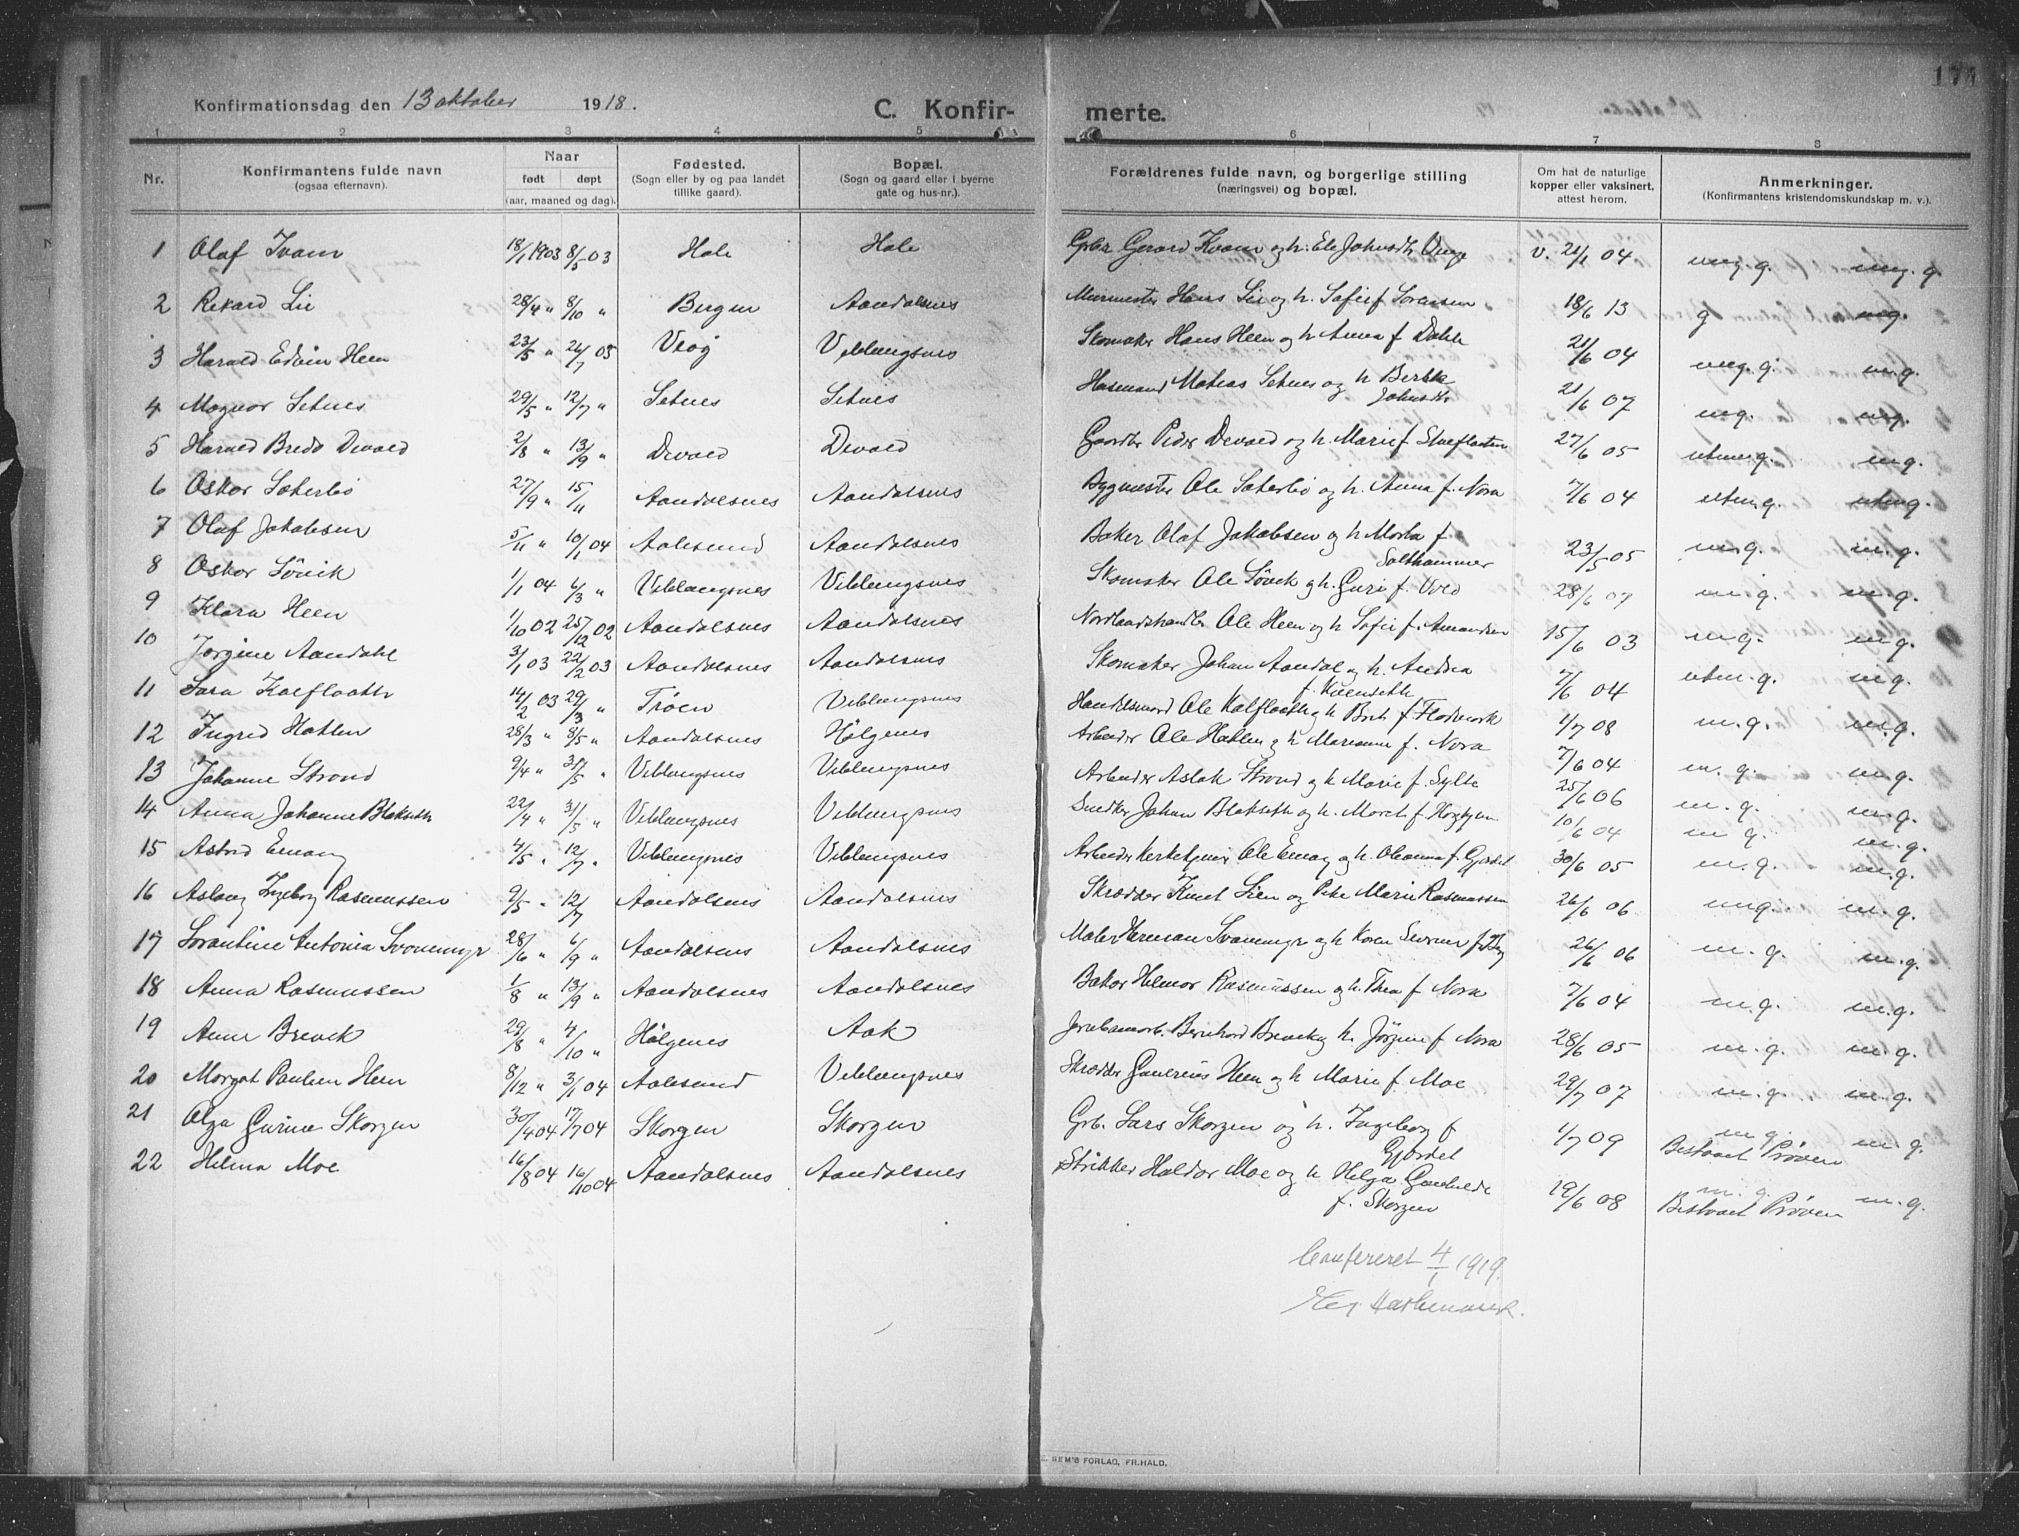 Konfirmationsdag den 13 oktober 1918. C. Konfir- merte. 174
1 2 3 4 5 6 7 8
Nr. Konfirmantens fulde navn (ogsaa efternavn). Naar født døpt (aar, maaned og dag). Fødested. (Sogn eller by og paa landet tillike gaard). Bopæl. (Sogn og gaard eller i byerne gate og hus-nr.). Forældrenes fulde navn, og borgerlige stilling (næringsvei) og bopæl. Om hat de naturlige kopper eller vaksinert, attest herom. Anmerkninger. (Konfirmantens kristendomskundskap m. v.).
1 Olaf Kvam 18/1 1903 8/5 03 Hole Hole Grbr. Gerard Kvam og h. Eli Johnsdtr Unge v. 21/1 04 meg. g. meg. g.
2 Rikard Lie 28/4 " 8/10 " Bergen Aandalsnes Murmester Hans Lie og h. Sofie f Sorensen 18/6 13 g mg.
3 Harald Edvin Heen 23/5 " 26/7 03 Veøy Veblungsnes Skomaker Hans Heen og h Anna f Dahle 21/6 04 meg. g. m.g.
4 Magnor Setnes 29/5 " 12/7 " Setnes Setnes Husmand Matias Setnes og h Berthe
Johnsdtr 21/6 07 mg. mg.
5 Harald Bredo Devold 2/8 " 13/9 " Devold Devold Gaardbr Peder Devold og h. Marie f Stueflaaten 27/6 05 utm.g. m g.
6 Oskar Sæterbø 27/9 " 15/11 Aandalsnes Aandalsnes Bygmester Ole Sæterbø og h. Anna f. Nora 7/6 04 utm.g. utm.g.
7 Olaf Jakobsen 5/11 " 10/1 04 Aalesund Aandalsnes Baker Olaf Jakobsen og h Marta f
Salthammer 23/5 05 m g. m. g.
8 Oskar Søvik 1/1 04 4/3 " Veblungsnes Veblungsnes Skomaker Ole Søvik og h. Guri f. Vold 28/6 07 m. g. m. g.
9 Klara Heen 1/10 02 25/12 02 Aandalsnes Aandalsnes Nordlandshandler Ole Heen og h Sofie f. Amundsen 15/6 03 m g. m g.
10 Jørgine Aandahl 3/1 03 22/2 03 Aandalsnes Aandalsnes Skomaker Johan Aandal og h. Andrea
f. 7/6 04 utm. g. m g.
11 Sara Kalflaath 14/2 03 29/3 " Trøen Veblungsnes Handelsmand Ole Kalflaath og h Berit f. Flodmark 1/7 08 m. g. m. g.
12 Ingrid Hatlen 28/3 " 8/5 " Aandalsnes Hølgenes Arbeider Ole Hatlen og h Marianne f. Nora 7/6 04 m. g. m. g.
13 Johanne Strand 9/4 " 31/5 " Veblungsnes Veblungsnes Arbeider Aslak Strand og h Marie f. Sylte 25/6 06 m. g. m. g.
14 Anna Johanne Blakseth 22/4 " 31/5 " Veblungsnes Veblungsnes Snedker Johan Blakseth og h. Maret f. 10/6 04 m g. m. g.
15 Astrid Emay 4/5 " 12/7 " Veblungsnes Veblungsnes Arbeider Kerketjener Ole Emay og h. Oleanna f. Gjerdet 30/6 05 m. g. m. g.
16 Aslaug Ingeborg Rasmussen 9/5 " 12/7 Aandalsnes Aandalsnes Skrædder Knut Lien og Pike Marie Rasmussen 26/6 06 mg. m. g.
17 Sorantine Antonia Svanemyr 28/6 " 6/9 " Aandalsnes Aandalsnes Maler Herman Svanemyr og h Karen 26/6 06 m. g. m. g.
18 Anna Rasmussen 1/8 " 13/9 " Aandalsnes Aandalsnes Baker Helmer Rasmussen og h. Thea f Nora 7/6 04 m. g. m. g.
19 Anne Brevik 29/8 " 4/10 " Hølgenes Aak Jernbanearb. Bernhard Brevik og h. Jørgine f Nora 28/6 05 m. g. m. g.
20 Margot Pauline Heen 8/12 " 3/1 04 Aalesund Veblungsnes Skrædder Gunerius Heen og h Marie f Moe 29/7 07 m. g. m. g.
21 Olga Gurine Skorgen 30/4 04 17/7 04 Skorgen Skorgen Grb. Lars Skorgen og h. Ingeborg f
Gjerdet 1/7 09 m g. Bestaaet Prøven m. g.
22 Helma Moe 16/8 04 16/10 04 Aandalsnes Aandalsnes Strikker Haldor Moe og h Helga Gunhilde
f. Skorgen 19/6 08 m. g. Bestaaet Prøven m. g.
Confereret 4/1 1919.
E. SEM'S FORLAG, FR.HALD.